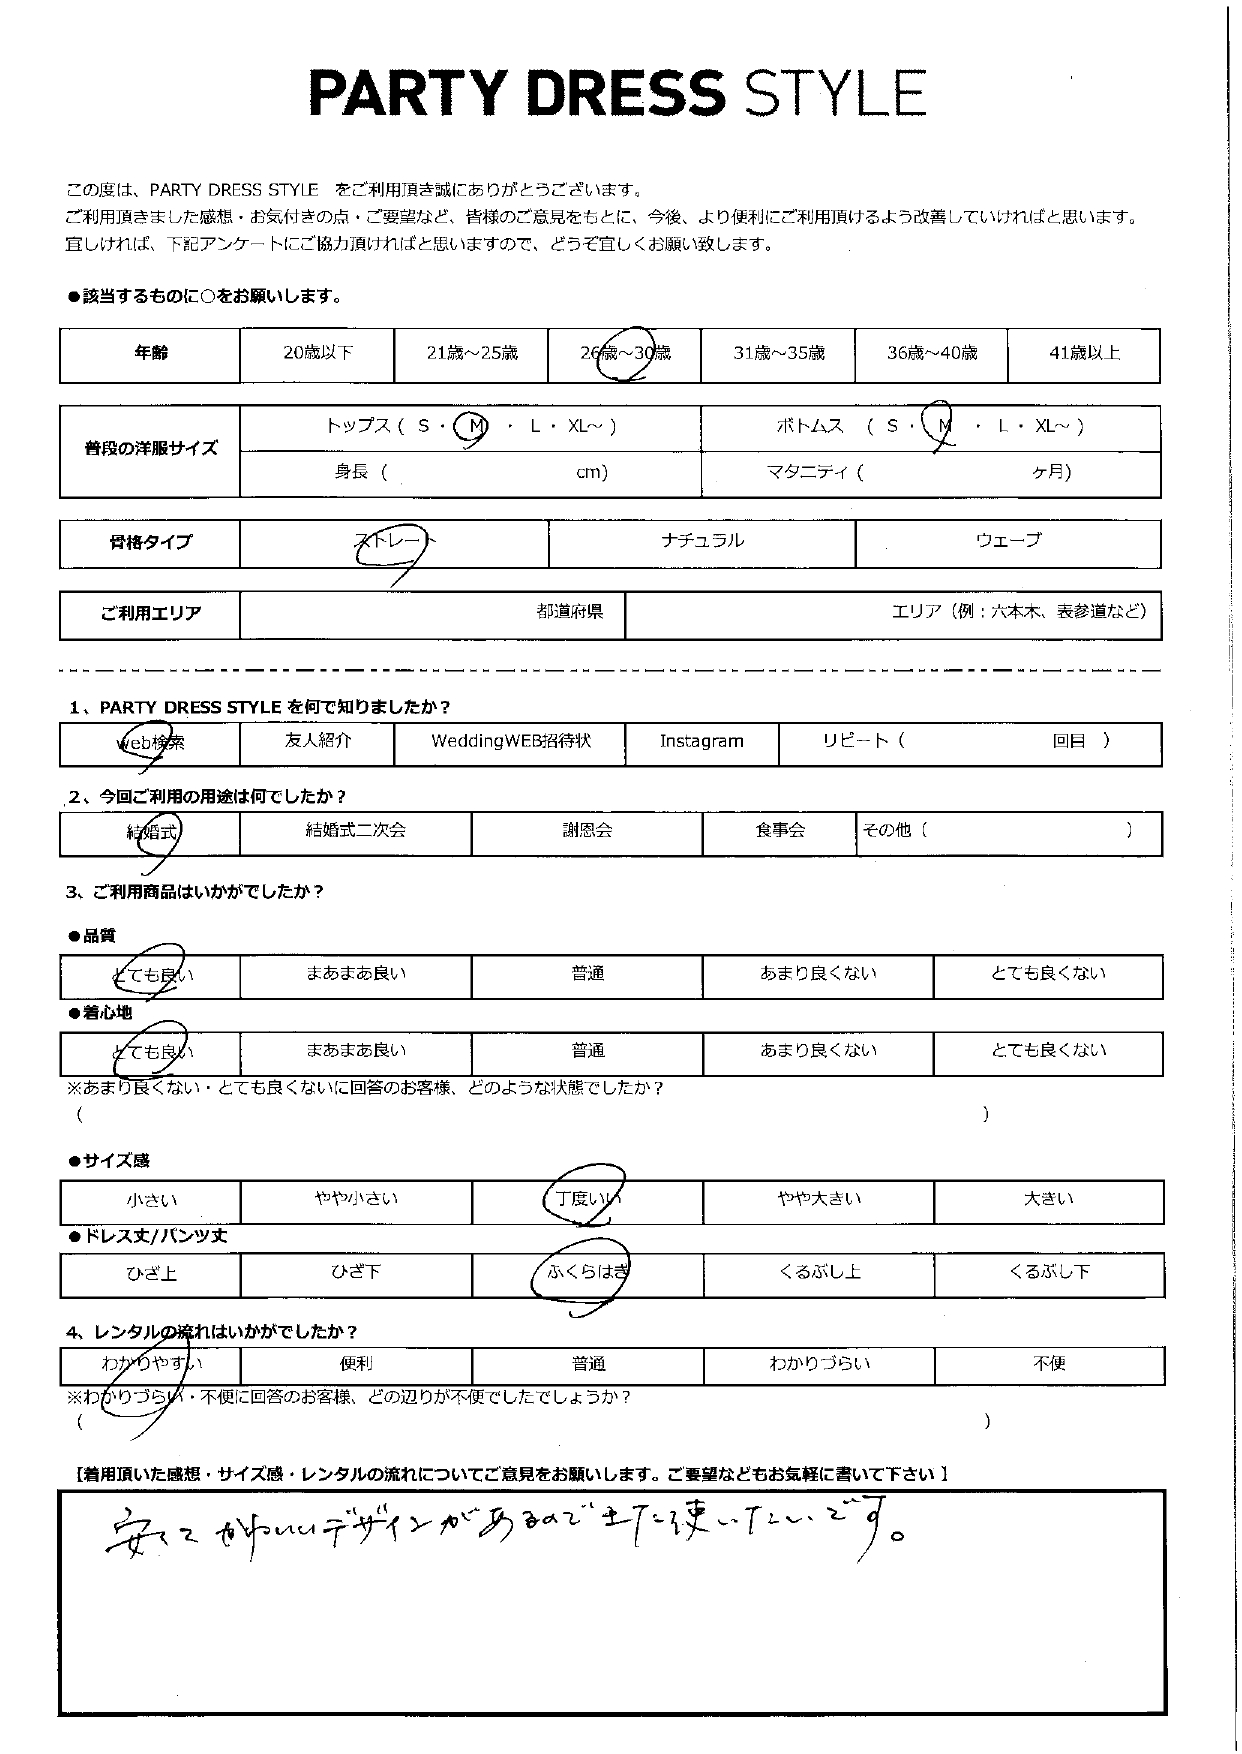 PARTY DRESS STYLE
この度は、PARTY DRESS STYLE　をご利用頂き誠にありがとうございます。
ご利用頂きました感想・お気付きの点・ご要望など、皆様のご意見をもとに、今後、より便利にご利用頂けるよう改善していければと思います。
宜しければ、下記アンケートにご協力頂ければと思いますので、どうぞ宜しくお願い致します。
●該当するものに○をお願いします。
年齢 20歳以下 21歳～25歳 26歳～30歳 31歳～35歳 36歳～40歳 41歳以上
普段の洋服サイズ トップス ( S ・ M ・ L ・ XL～ ) ボトムス ( S ・ M ・ L ・ XL～ )
身長 ( cm) マタニティ ( ケ月)
骨格タイプ ストレート ナチュラル ウェーブ
ご利用エリア 都道府県 エリア（例：六本木、表参道など）
1、PARTY DRESS STYLE を何で知りましたか？
web検索 友人紹介 WeddingWEB招待状 Instagram リピート ( 回目 )
2、今回ご利用の用途は何でしたか？
結婚式 結婚式二次会 謝恩会 食事会 その他 ( )
3、ご利用商品はいかがでしたか？
●品質
とても良い まあまあ良い 普通 あまり良くない とても良くない
●着心地
とても良い まあまあ良い 普通 あまり良くない とても良くない
※あまり良くない・とても良くないに回答のお客様、どのような状態でしたか？
( )
●サイズ感
小さい やや小さい 丁度いい やや大きい 大きい
●ドレス丈/パンツ丈
ひざ上 ひざ下 ふくらはぎ くるぶし上 くるぶし下
4、レンタルの流れはいかがでしたか？
わかりやすい 便利 普通 わかりづらい 不便
※わかりづらい・不便に回答のお客様、どの辺りが不便でしたでしょうか？
( )
【着用頂いた感想・サイズ感・レンタルの流れについてご意見をお願いします。ご要望などもお気軽に書いて下さい】
安くてかわいいデザインがあるのでまた使いたいです。